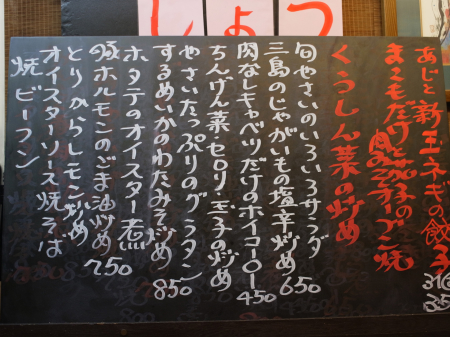 しょう
あじと新玉ネギの餃子
316
まこもだけと茄子の肉みそチーズ焼
くうしん菜の炒め
旬やさいのいろいろサラダ
三島のじゃがいもの塩辛炒め 650
肉なしキャベツだけのホイコーロー 450
ちんげん菜・セロリ・玉子の炒め
やさいたっぷりのグラタン 850
するめいかのわたみそ炒め
ホタテのオイスター煮
豚ホルモンのごま油炒め 750
とりからレモン炒め
オイスターソース焼そば
焼ビーフン